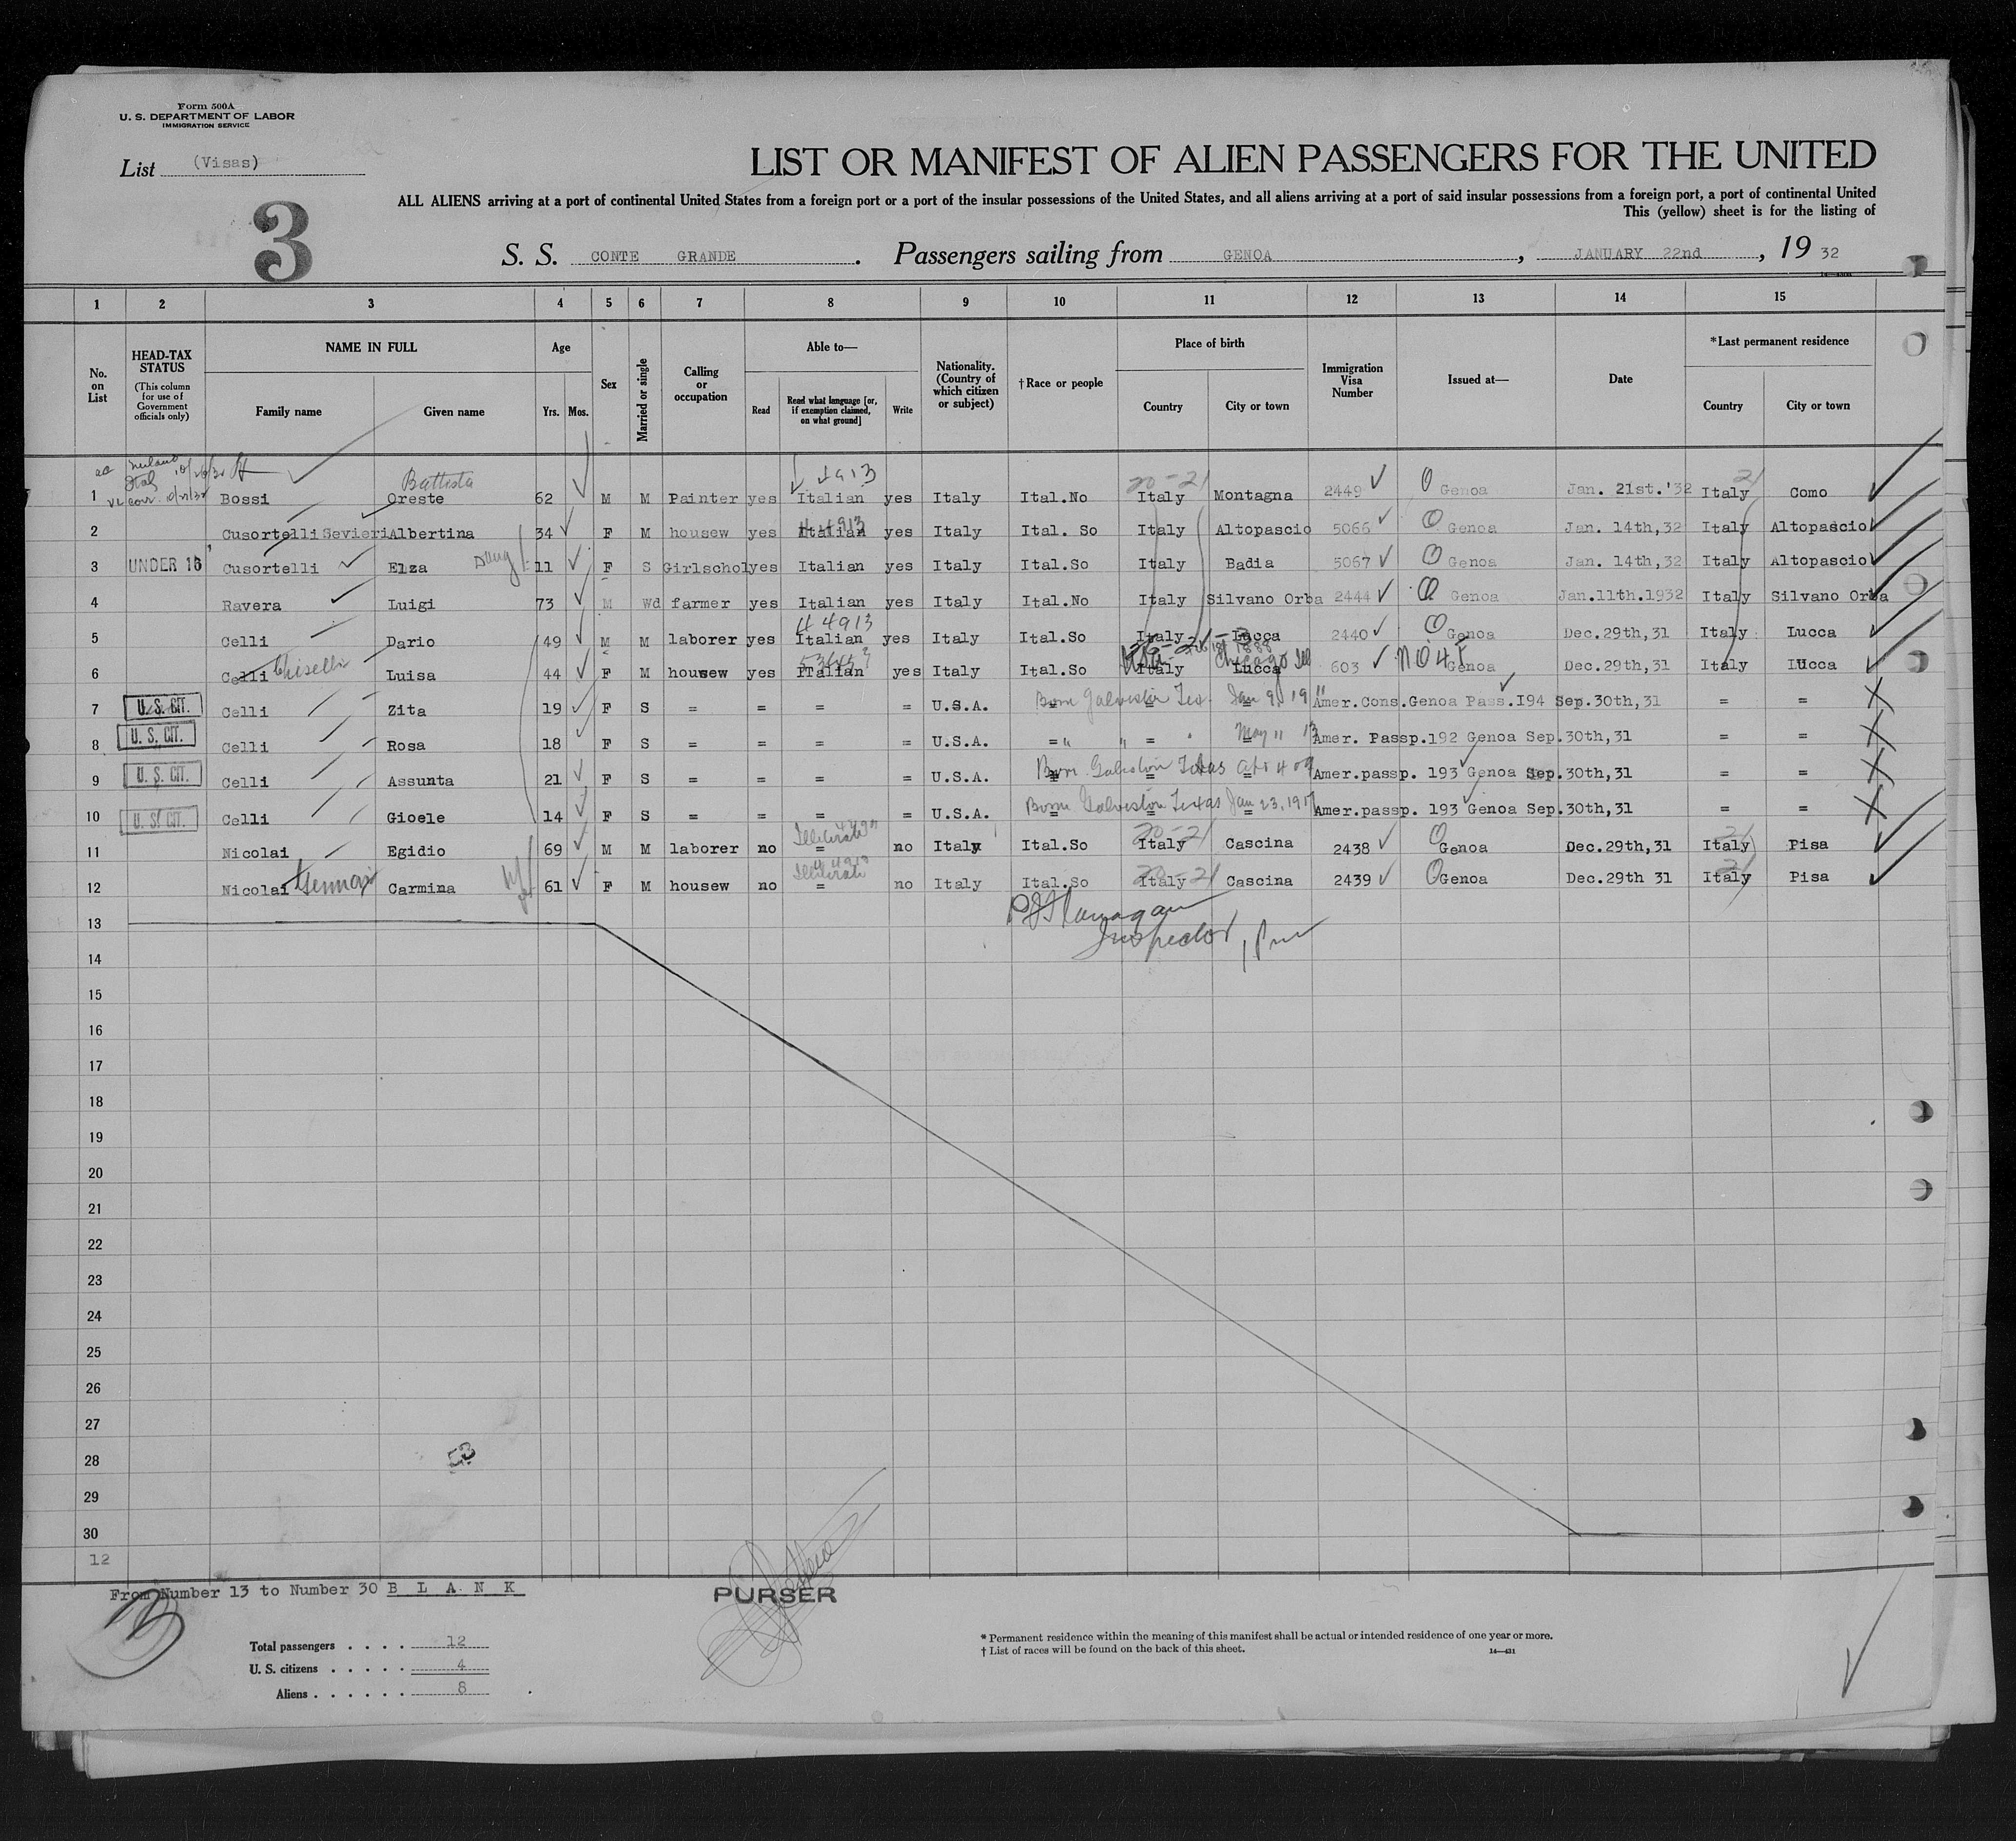 Form 500A
U. S. DEPARTMENT OF LABOR
IMMIGRATION SERVICE
List (Visas)
LIST OR MANIFEST OF ALIEN PASSENGERS FOR THE UNITED
ALL ALIENS arriving at a port of continental United States from a foreign port or a port of the insular possessions of the United States, and all aliens arriving at a port of said insular possessions from a foreign port, a port of continental United
This (yellow) sheet is for the listing of
3
S. S. CONTE GRANDE. Passengers sailing from GENOA, JANUARY 22nd, 19 32
1 2 3 4 5 6 7 8 9 10 11 12 13 14 15
No. on List
HEAD-TAX STATUS (This column for use of Government officials only)
NAME IN FULL
Family name Given name
Age
Yrs. Mos.
Sex
Married or single
Calling or occupation
Able to—
Read Read what language [or, if exemption claimed, on what ground] Write
Nationality. (Country of which citizen or subject)
†Race or people
Place of birth
Country City or town
Immigration Visa Number
Issued at—
Date
*Last permanent residence
Country City or town
Battista 4913 20-21 21
1 Bossi Oreste 62 M M Painter yes Italian yes Italy Ital.No Italy Montagna 2449 Genoa Jan. 21st.'32 Italy Como
2 Cusortelli Sevieri Albertina 34 F M housew yes Italian yes Italy Ital. So Italy Altopascio 5066 Genoa Jan. 14th,32 Italy Altopascio
3 UNDER 16 Cusortelli Elza Daug 11 F S Girlschol yes Italian yes Italy Ital.So Italy Badia 5067 Genoa Jan. 14th,32 Italy Altopascio
4 Ravera Luigi 73 M Wd farmer yes Italian yes Italy Ital.No Italy Silvano Orba 2444 Genoa Jan.11th.1932 Italy Silvano Orba
44913
5 Celli Dario 49 M M laborer yes Italian yes Italy Ital.So Italy Lucca 2440 Genoa Dec.29th,31 Italy Lucca
6 Celli Luisa 44 F M housew yes Italian yes Italy Ital.So Italy Lucca 603 Genoa Dec.29th,31 Italy Lucca
7 U.S. CIT. Celli Zita 19 F S = = = = U.S.A. Born Galveston Tex. Jan 9, 19 Amer.Cons.Genoa Pass.I94 Sep.30th,31 = =
8 U.S. CIT. Celli Rosa 18 F S = = = = U.S.A. = " " = " May 11 13 Amer. Passp.192 Genoa Sep.30th,31 = =
9 U.S. CIT. Celli Assunta 21 F S = = = = U.S.A. Born Galveston Texas Amer.passp. 193 Genoa Sep.30th,31 = =
10 U.S. CIT. Celli Gioele 14 F S = = = = U.S.A. Born Galveston Texas Jan 23, 1917 Amer.passp. 193 Genoa Sep.30th,31 = =
Illiterate 20-21 21
11 Nicolai Egidio 69 M M laborer no = no Italy Ital.So Italy Cascina 2438 Genoa Dec.29th,31 Italy Pisa
Illiterate 20-21 21
12 Nicolai Carmina 61 F M housew no = no Italy Ital.So Italy Cascina 2439 Genoa Dec.29th 31 Italy Pisa
13
Inspector
14
15
16
17
18
19
20
21
22
23
24
25
26
27
28
53
29
30
12
From Number 13 to Number 30 B L A N K
PURSER
Total passengers . . . . 12
U. S. citizens . . . . . 4
Aliens . . . . . . 8
* Permanent residence within the meaning of this manifest shall be actual or intended residence of one year or more.
† List of races will be found on the back of this sheet.
14—431